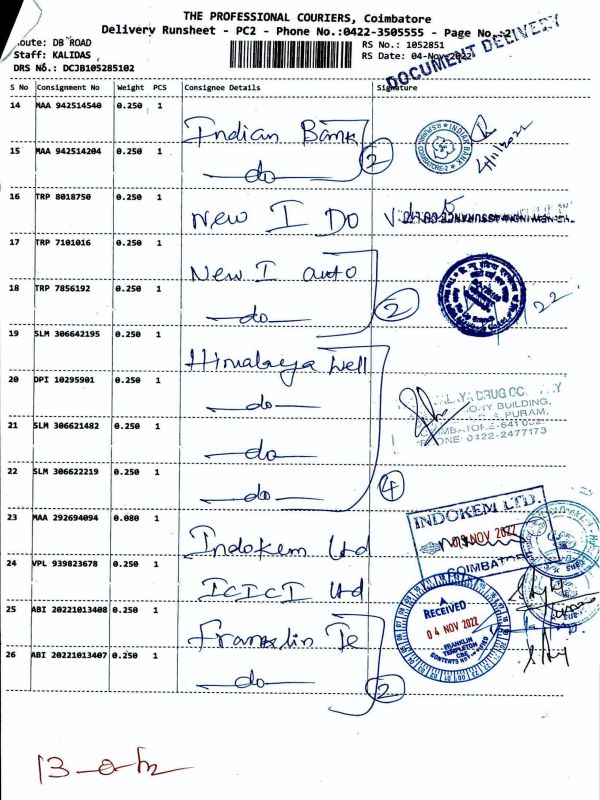 THE PROFESSIONAL COURIERS, Coimbatore
Delivery Runsheet - PC2 - Phone No.:0422-3505555 - Page No.:2
Route: DB ROAD
RS No.: 1052851
Staff: KALIDAS
RS Date: 04-Nov-2022
DRS No.: DCJB105285102
DOCUMENT DELIVERY
S No Consignment No Weight PCS Consignee Details Signature
14 MAA 942514540 0.250 1 Indian Bank
15 MAA 942514204 0.250 1 -do- 2
INDIAN BANK
COIMBATORE-2
4/11/2022
16 TRP 8018750 0.250 1 New I Do
17 TRP 7101016 0.250 1 New I auto
18 TRP 7856192 0.250 1 -do- 2
22
19 SLM 306642195 0.250 1 Himalaya Well
20 DPI 10295901 0.250 1 -do-
DRUG CO
BUILDING,
PURAM,
PHONE: 0422-2477173
21 SLM 306621482 0.250 1 -do-
22 SLM 306622219 0.250 1 -do- 4
23 MAA 292694094 0.080 1 Indokem Ltd
INDOKEM LTD.
03 NOV 2022
COIMBATORE
24 VPL 939823678 0.250 1 ICICI Ltd
25 ABI 20221013408 0.250 1 Franklin Te
RECEIVED
04 NOV 2022
FRANKLIN
TEMPLETON
CBE
CONTENTS NOT VERIFIED
26 ABI 20221013407 0.250 1 -do- 2